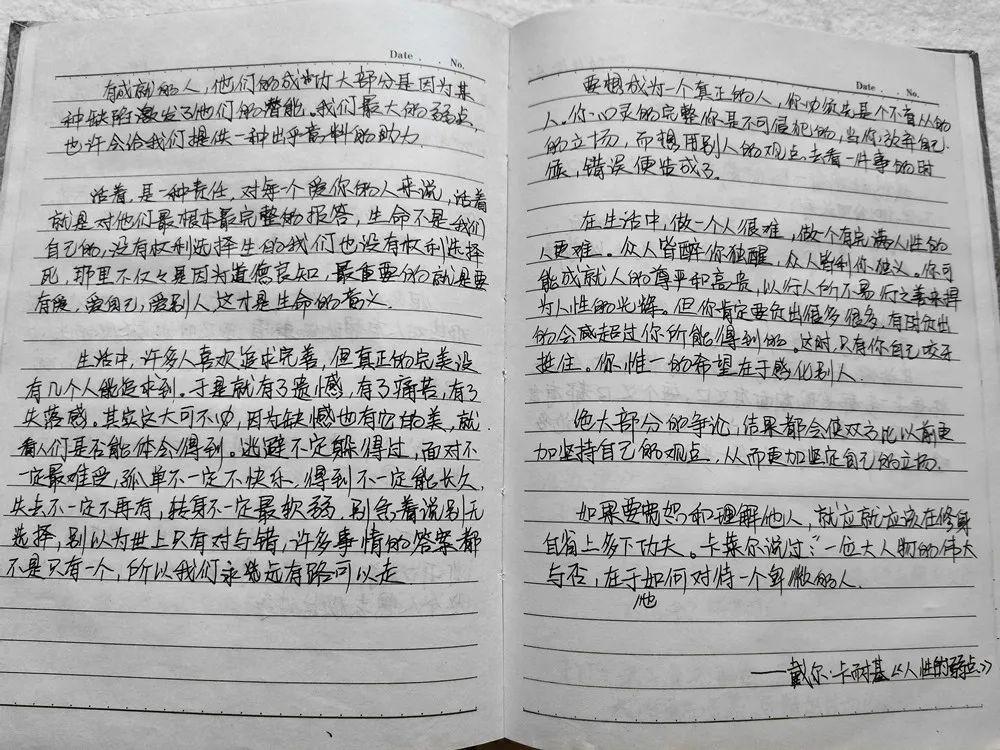 Date . . No.
有成就的人，他们的成功大部分是因为某
种缺陷激发了他们的潜能。我们最大的弱点，
也许会给我们提供一种出乎意料的助力
活着，是一种责任，对每一个爱你的人来说，活着
就是对他们最根本最完整的报答，生命不是我们
自己的，没有权利选择生的我们也没有权利选择
死，那里不仅仅是因为道德良知，最重要的就是要
有爱，爱自己，爱别人这才是生命的意义.
生活中，许多人喜欢追求完善，但真正的完美没
有几个人能追求到。于是就有了遗憾，有了痛苦，有了
失落感。其实这大可不必，因为缺憾也有它的美，就
看人们是否能体会得到。逃避不定躲得过，面对不
一定最难受，孤单不一定不快乐，得到不一定能长久，
失去不一定不再有，转身不一定最软弱，别急着说别无
选择，别以为世上只有对与错，许多事情的答案都
不是只有一个，所以我们永远有路可以走
Date . . No.
要想成为一个真正的人，你必须先是个不盲从的
人。你心灵的完整你是不可侵犯的，当你放弃自己
的立场，而想用别人的观点去看一件事的时
候，错误便造成了。
在生活中，做一个人很难，做个有完满人性的
人更难。众人皆醉你独醒，众人皆利你独义。你可
能成就人的尊严和高贵，以行人所不易行之善来捍
为人性的光辉。但你肯定要负出很多很多，有时负出
的会感超过你所能得到的。这时，只有你自己咬牙
挺住。你惟一的希望在于感化别人.
绝大部分的争论，结果都会使双方比以前更
加坚持自己的观点，从而更加坚定自己的立场.
如果要宽恕和理解他人，就应就应该在修身
自省上多下功夫。卡莱尔说过："一位大人物的伟大
与否，在于如何对待一个卑微的人.
他
——戴尔·卡耐基《人性的弱点》